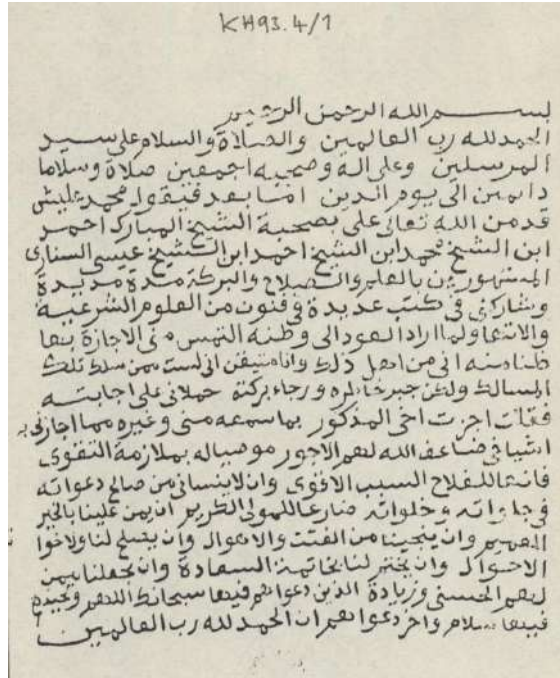 KH93.4/1
بسم الله الرحمن الرحيم
الحمد لله رب العالمين والصلاة والسلام على سيد
المرسلين وعلى اله وصحبه اجمعين صلاة وسلاما
دايمين الى يوم الدين اما بعد فيقول محمد عليش
قد من الله تعالى علي بصحبة الشيخ المبارك احمد
ابن الشيخ محمد ابن الشيخ احمد ابن الشيخ عيسى السناري
المشهورين بالعلم والصلاح والبركة مدة مديدة
وشاركني في كتب عديدة في فنون من العلوم الشرعية
والاتها ولما اراد العود الى وطنه التمس مني الاجازة بها
ظنا منه اني من اهل ذلك وانا متيقن اني لست ممن سلك تلك
المسالك ولكن جبر خاطره ورجاء بركته حملاني على اجابته
فقلت اجزت اخي المذكور بما سمعه مني وغيره مما اجازني به
اشياخي ضاعف الله لهم الاجور موصيا له بملازمة التقوى
فانها للفلاح السبب الاقوى وان لا ينساني من صالح دعواته
في جلواته وخلواته ضارعا للمولى الكريم ان يمن علينا بالخير
العميم وان ينجينا من الفتن والاهوال وان يصلح لنا ولاخوا
الاحوال وان يختم لنا بخاتمة السعادة وان يجعلنا بمن
لهم الحسنى وزيادة الذين دعواهم فيها سبحانك اللهم وتحيتهم
فيها سلام واخر دعواهم ان الحمد لله رب العالمين